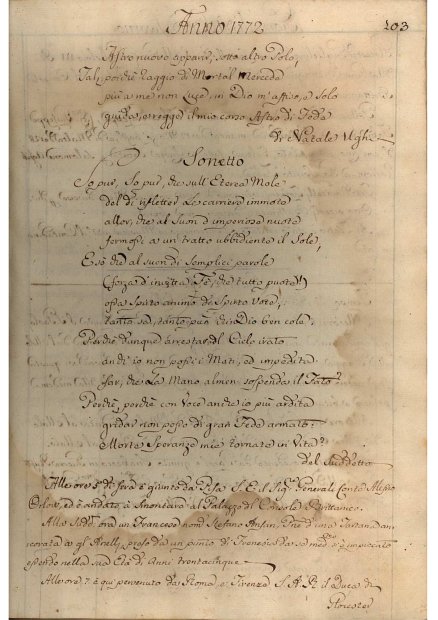 Anno 1772
203
Astro nuovo apparì, sotto altro Polo,
Tal, perchè raggio di Mortal Mercede
più a me non luce, in Dio m'affiso, e Solo
guida, e regge il mio corso Astro di Fede
Di Natale Ughi
Sonetto
So pur, So pur, che sull'Eterea Mole
del dì rifletter Le carriere immoto
allor, che al Suon d'imperiose note
fermossi a un tratto ubbidiente il Sole,
E sò che al suon di Semplici parole
(forza d'invitta Fè, che tutto puote)
opra Spirto
tanto sa, tanto può chi Dio ben cole.
Perchè dunque arrestar del Cielo irato
anch'io non possi i Moti, ed impedita
far, che La Mano almen sospenda il Fato?
Perchè, perchè con Voce anche io più ardita
gridar non posso di gran Fede armato:
Morte Speranze mie tornate in Vita?
Del Suddetto
Alle ore 5 di Sera è giunto da Pisa S. E. il Sig.r Generale Conte Alessio
Orlow, ed è andato a Smontare al Palazzo del Console Brittanico.
Alla Sudd.a ora un Francese nom.o Stefano
corata a gl'Anelli, preso da un
essendo nella sua Età di Anni trentacinque
Alle ore 7 è qui pervenuto da Roma, e Firenze S. A. R. il Duca di
Glocester